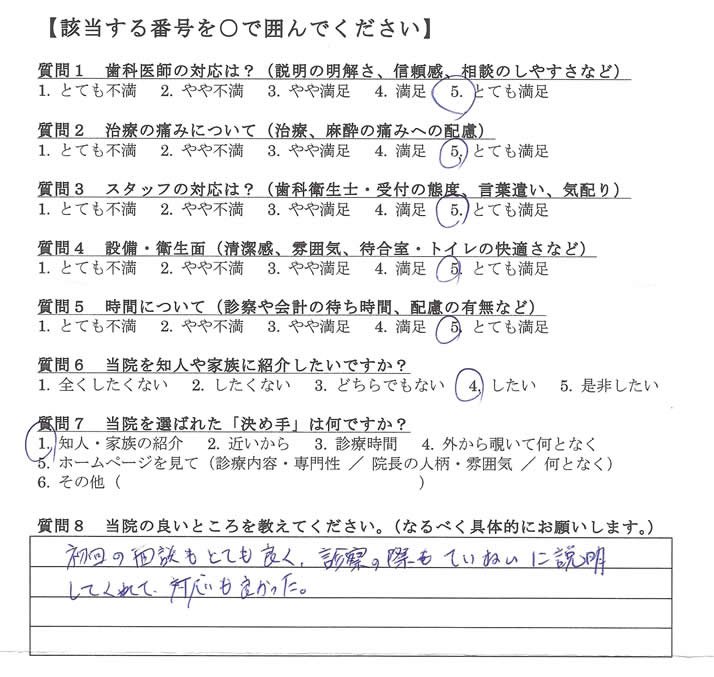 【該当する番号を○で囲んでください】
質問１　歯科医師の対応は？（説明の明解さ、信頼感、相談のしやすさなど）
1. とても不満　2. やや不満　3. やや満足　4. 満足　5. とても満足
質問２　治療の痛みについて（治療、麻酔の痛みへの配慮）
1. とても不満　2. やや不満　3. やや満足　4. 満足　5. とても満足
質問３　スタッフの対応は？（歯科衛生士・受付の態度、言葉遣い、気配り）
1. とても不満　2. やや不満　3. やや満足　4. 満足　5. とても満足
質問４　設備・衛生面（清潔感、雰囲気、待合室・トイレの快適さなど）
1. とても不満　2. やや不満　3. やや満足　4. 満足　5. とても満足
質問５　時間について（診察や会計の待ち時間、配慮の有無など）
1. とても不満　2. やや不満　3. やや満足　4. 満足　5. とても満足
質問６　当院を知人や家族に紹介したいですか？
1. 全くしたくない　2. したくない　3. どちらでもない　4. したい　5. 是非したい
質問７　当院を選ばれた「決め手」は何ですか？
1. 知人・家族の紹介　2. 近いから　3. 診療時間　4. 外から覗いて何となく
5. ホームページを見て（診療内容・専門性 ／ 院長の人柄・雰囲気 ／ 何となく）
6. その他（　　　　　　　　　　　　　　　）
質問８　当院の良いところを教えてください。（なるべく具体的にお願いします。）
初回の相談もとても良く、診察の際もていねいに説明
してくれて、対応も良かった。